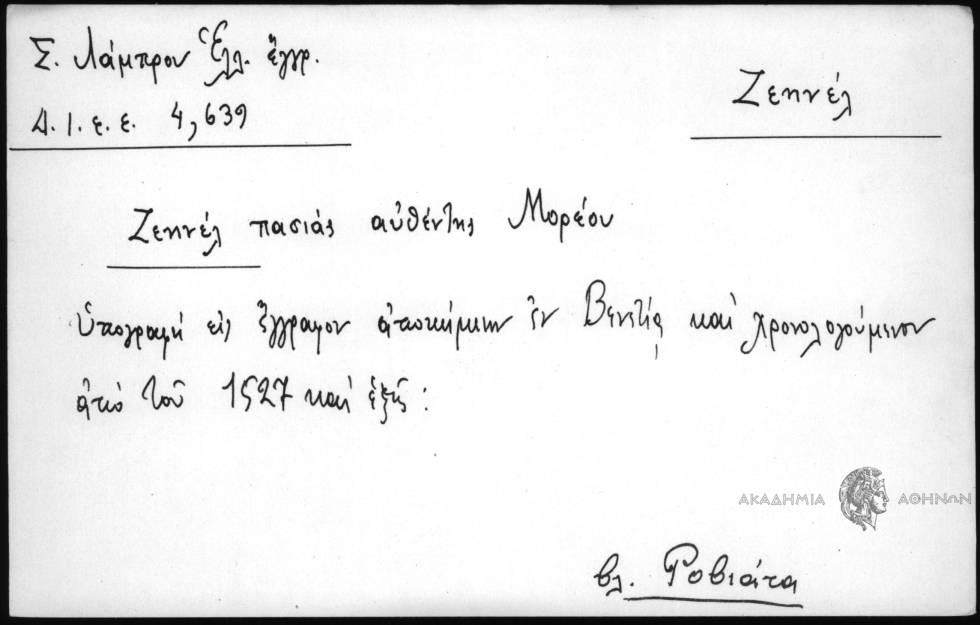 Σ. Λάμπρου Ἑλλ. ἔγγρ.
Δ.Ι.ε.ε. 4,639
Ζεηνέλ
Ζεηνέλ πασιάς αὐθέντης Μορέου
Ὑπογραφή εἰς ἔγγραφον ἀποκείμενον ἐν Βενετίᾳ καὶ χρονολογούμενον
ἀπὸ τοῦ 1527 καὶ ἑξῆς :
ΑΚΑΔΗΜΙΑ ΑΘΗΝΩΝ
βλ. Ροβιάτα